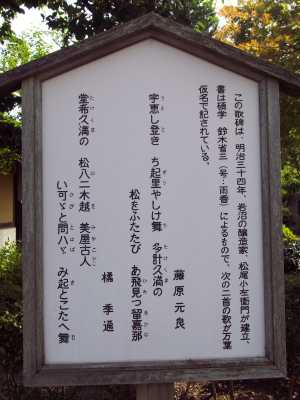 この歌碑は、明治三十四年、岩沼の醸造家、松尾小左衛門が建立、
書は碩学　鈴木省三（号：雨香）によるもので、次の二首の歌が万葉
仮名で記されている。
藤原元良
宇恵し登き　ち起里やしけ舞　多計久満の
松をふたたび　あ飛見つ留嘉那
橘季通
堂希久満の　松ハ二木越　美屋古人
い可ゞと問ハゞ　み起とこたへ舞